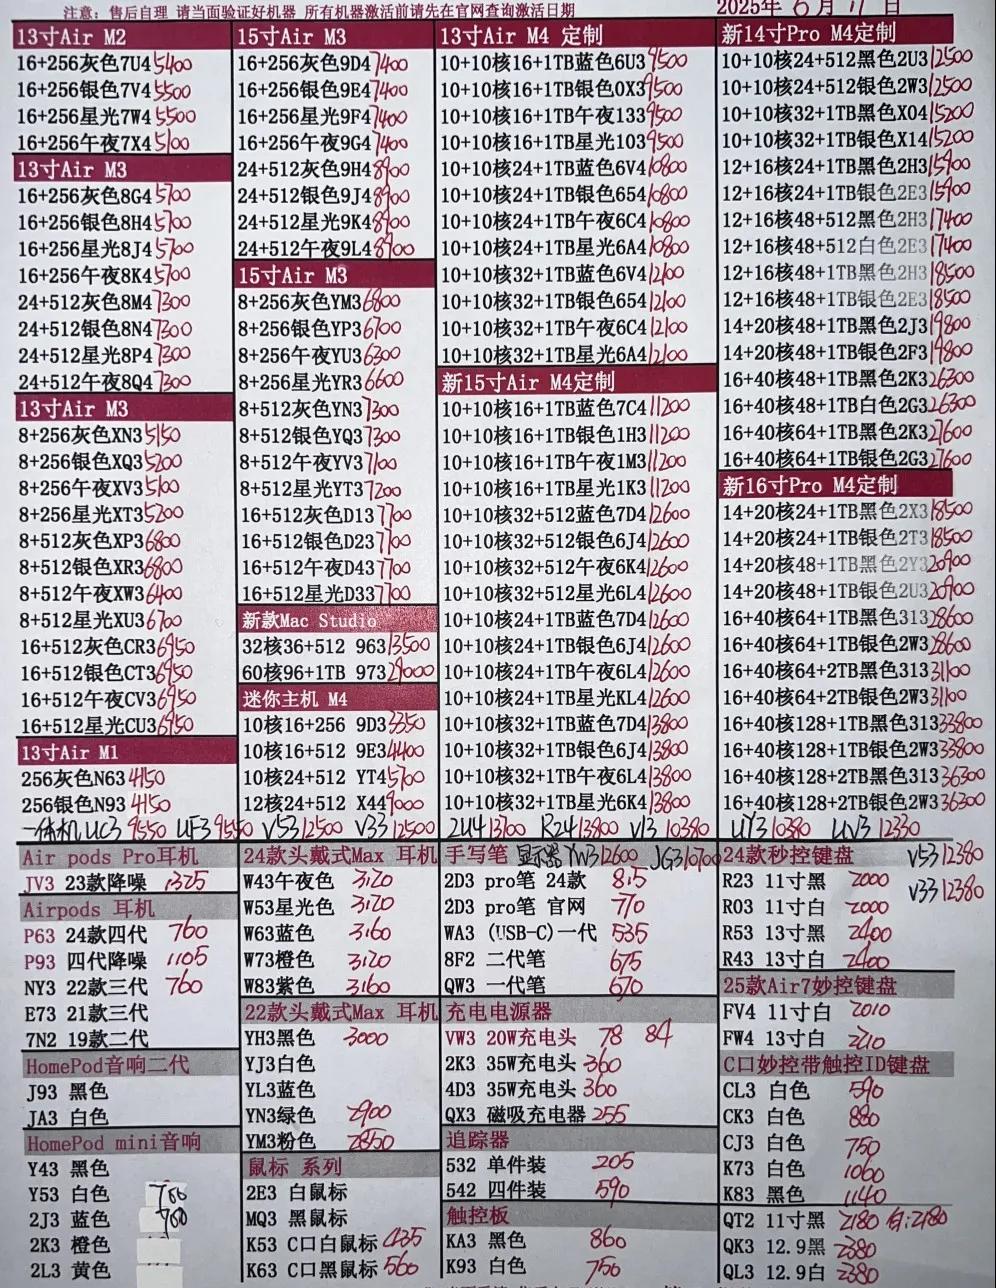 注意: 售后自理 请当面验证好机器 所有机器激活前请先在官网查询激活日期
2025年 6 月 11 日
13寸Air M2
16+256灰色7U4 5400
16+256银色7V4 5500
16+256星光7W4 5500
16+256午夜7X4 5100
13寸Air M3
16+256灰色8G4 5700
16+256银色8H4 5700
16+256星光8J4 5700
16+256午夜8K4 5700
24+512灰色8M4 7300
24+512银色8N4 7300
24+512星光8P4 7300
24+512午夜8Q4 7300
13寸Air M3
8+256灰色XN3 5150
8+256银色XQ3 5200
8+256午夜XV3 5100
8+256星光XT3 5200
8+512灰色XP3 6800
8+512银色XR3 6800
8+512午夜XW3 6400
8+512星光XU3 6700
16+512灰色CR3 6950
16+512银色CT3 6950
16+512午夜CV3 6950
16+512星光CU3 6950
13寸Air M1
256灰色N63 4150
256银色N93 4150
15寸Air M3
16+256灰色9D4 7400
16+256银色9E4 7400
16+256星光9F4 7400
16+256午夜9G4 7400
24+512灰色9H4 8900
24+512银色9J4 8900
24+512星光9K4 8900
24+512午夜9L4 8900
15寸Air M3
8+256灰色YM3 6800
8+256银色YP3 6700
8+256午夜YU3 6300
8+256星光YR3 6600
8+512灰色YN3 7300
8+512银色YQ3 7300
8+512午夜YV3 7100
8+512星光YT3 7200
16+512灰色D13 7700
16+512银色D23 7700
16+512午夜D43 7700
16+512星光D33 7700
新款Mac Studio
32核36+512 963 13500
60核96+1TB 973 29000
迷你主机 M4
10核16+256 9D3 3350
10核16+512 9E3 4400
10核24+512 YT4 5700
12核24+512 X44 9000
13寸Air M4 定制
10+10核16+1TB蓝色6U3 9500
10+10核16+1TB银色0X3 9500
10+10核16+1TB午夜133 9500
10+10核16+1TB星光103 9500
10+10核24+1TB蓝色6V4 10800
10+10核24+1TB银色654 10800
10+10核24+1TB午夜6C4 10800
10+10核24+1TB星光6A4 10800
10+10核32+1TB蓝色6V4 12100
10+10核32+1TB银色654 12100
10+10核32+1TB午夜6C4 12100
10+10核32+1TB星光6A4 12100
新15寸Air M4定制
10+10核16+1TB蓝色7C4 11200
10+10核16+1TB银色1H3 11200
10+10核16+1TB午夜1M3 11200
10+10核16+1TB星光1K3 11200
10+10核32+512蓝色7D4 12600
10+10核32+512银色6J4 12600
10+10核32+512午夜6K4 12600
10+10核32+512星光6L4 12600
10+10核24+1TB蓝色7D4 12600
10+10核24+1TB银色6J4 12600
10+10核24+1TB午夜6L4 12600
10+10核24+1TB星光KL4 12600
10+10核32+1TB蓝色7D4 13800
10+10核32+1TB银色6J4 13800
10+10核32+1TB午夜6L4 13800
10+10核32+1TB星光6K4 13800
新14寸Pro M4定制
10+10核24+512黑色2U3 12500
10+10核24+512银色2W3 12500
10+10核32+1TB黑色X04 15200
10+10核32+1TB银色X14 15200
12+16核24+1TB黑色2H3 15900
12+16核24+1TB银色2E3 15900
12+16核48+512黑色2H3 17400
12+16核48+512白色2E3 17400
12+16核48+1TB黑色2H3 18500
12+16核48+1TB银色2E3 18500
14+20核48+1TB黑色2J3 19800
14+20核48+1TB银色2F3 19800
16+40核48+1TB黑色2K3 26300
16+40核48+1TB白色2G3 26300
16+40核64+1TB黑色2K3 27600
16+40核64+1TB银色2G3 27600
新16寸Pro M4定制
14+20核24+1TB黑色2X3 18500
14+20核24+1TB银色2T3 18500
14+20核48+1TB黑色2Y3 20900
14+20核48+1TB银色2U3 20900
16+40核64+1TB黑色313 28600
16+40核64+1TB银色2W3 28600
16+40核64+2TB黑色313 31100
16+40核64+2TB银色2W3 31100
16+40核128+1TB黑色313 33800
16+40核128+1TB银色2W3 33800
16+40核128+2TB黑色313 36300
16+40核128+2TB银色2W3 36300
一体机 UC3 9550 UF3 9550 V53 12500 V33 12500 2U4 13700 R24 13800 V13 10380 UY3 10380 UV3 12330
Air pods Pro耳机
JV3 23款降噪 1325
Airpods 耳机
P63 24款四代 760
P93 四代降噪 1105
NY3 22款三代 760
E73 21款三代
7N2 19款二代
HomePod音响二代
J93 黑色
JA3 白色
HomePod mini音响
Y43 黑色
Y53 白色 700
2J3 蓝色 700
2K3 橙色
2L3 黄色
24款头戴式Max 耳机
W43午夜色 3120
W53星光色 3120
W63蓝色 3160
W73橙色 3120
W83紫色 3160
22款头戴式Max 耳机
YH3黑色 3000
YJ3白色
YL3蓝色
YN3绿色 2900
YM3粉色 2850
鼠标 系列
2E3 白鼠标
MQ3 黑鼠标
K53 C口白鼠标 435
K63 C口黑鼠标 560
手写笔 显示器 YW3 12600 JG3 10700
2D3 pro笔 24款 815
2D3 pro笔 官网 770
WA3 (USB-C)一代 535
8F2 二代笔 675
QW3 一代笔 670
充电电源器
VW3 20W充电头 78 84
2K3 35W充电头 360
4D3 35W充电头 360
QX3 磁吸充电器 255
追踪器
532 单件装 205
542 四件装 590
触控板
KA3 黑色 860
K93 白色 750
24款秒控键盘 V53 12380
V33 12380
R23 11寸黑 2000
R03 11寸白 2000
R53 13寸黑 2400
R43 13寸白 2400
25款Air7妙控键盘
FV4 11寸白 2010
FW4 13寸白 2210
C口妙控带触控ID键盘
CL3 白色 590
CK3 白色 880
CJ3 白色 750
K73 白色 1060
K83 黑色 1140
QT2 11寸黑 2180 白:2180
QK3 12.9黑 2380
QL3 12.9白 2380